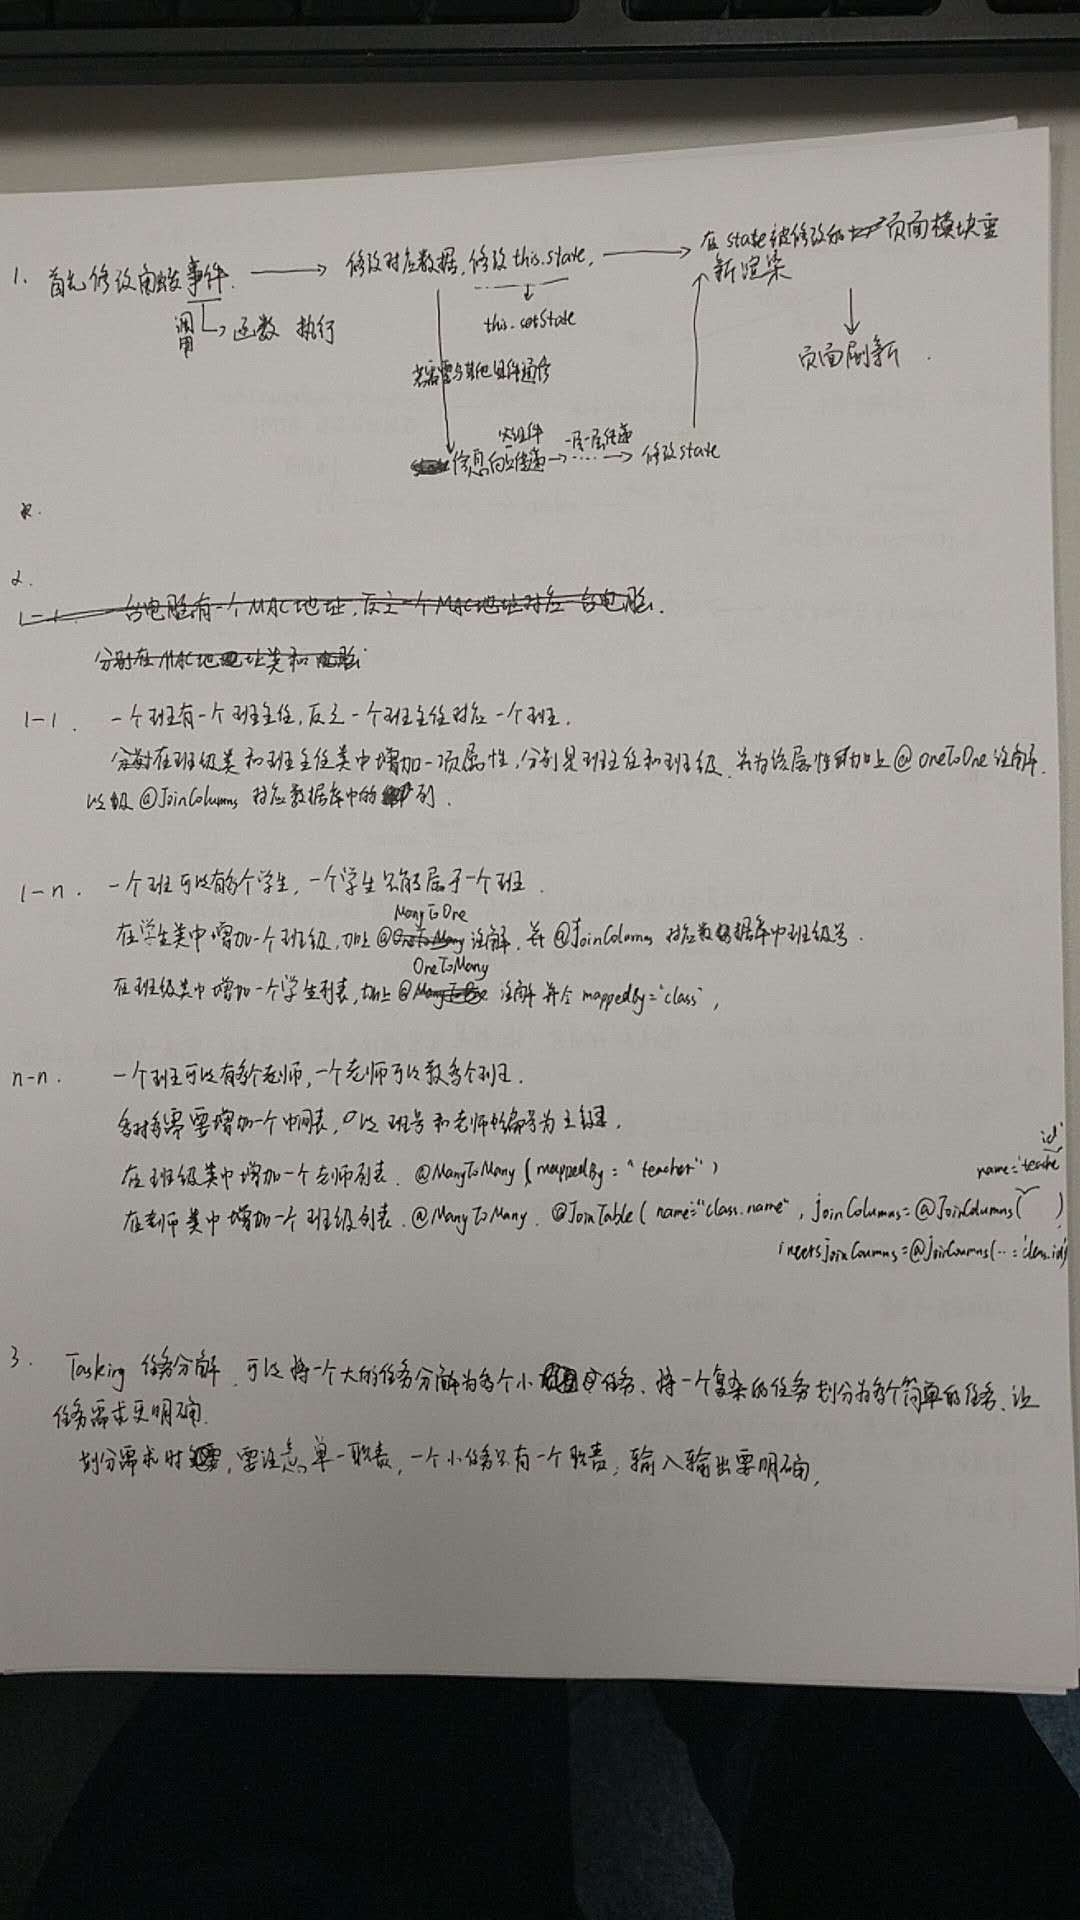 1. 首先修改触发事件. → 修改对应数据, 修改 this.state, → 在 state 被修改的页面模块重
新渲染
调用 → 函数 执行
this.setState
页面刷新.
若需要与其他组件通信
父组件
信息向上传递 → 一层一层传递 → 修改 state
2.
1-1. 一个班有一个班主任, 反之一个班主任对应一个班.
分别在班级类和班主任类中增加一项属性, 分别是班主任和班级. 并为该属性加上 @OneToOne 注解.
以及 @JoinColumns 对应数据库中的列.
1-n. 一个班可以有多个学生, 一个学生只能属于一个班.
ManyToOne
在学生类中增加一个班级, 加上 @ 注解, 并 @JoinColumns 对应数据库中班级号.
OneToMany
在班级类中增加一个学生列表, 加上 @ 注解 并令 mappedBy="class",
n-n. 一个班可以有多个老师, 一个老师可以教多个班.
多对多需要增加一个中间表, 以 班号 和老师编号为主键.
在班级类中增加一个老师列表. @ManyToMany (mappedBy = "teacher")
在老师类中增加一个班级列表. @ManyToMany. @JoinTable( name="class.name", joinColumns=@JoinColumns( name='teache id' )
inversjoinCoumns=@joinCoumns(… = 'class.id')
3. Tasking 任务分解. 可以将一个大的任务分解为多个小任务、将一个复杂的任务划分为多个简单的任务. 让
任务需求更明确.
划分需求时, 要注意单一职责, 一个小任务只有一个职责, 输入输出要明确,